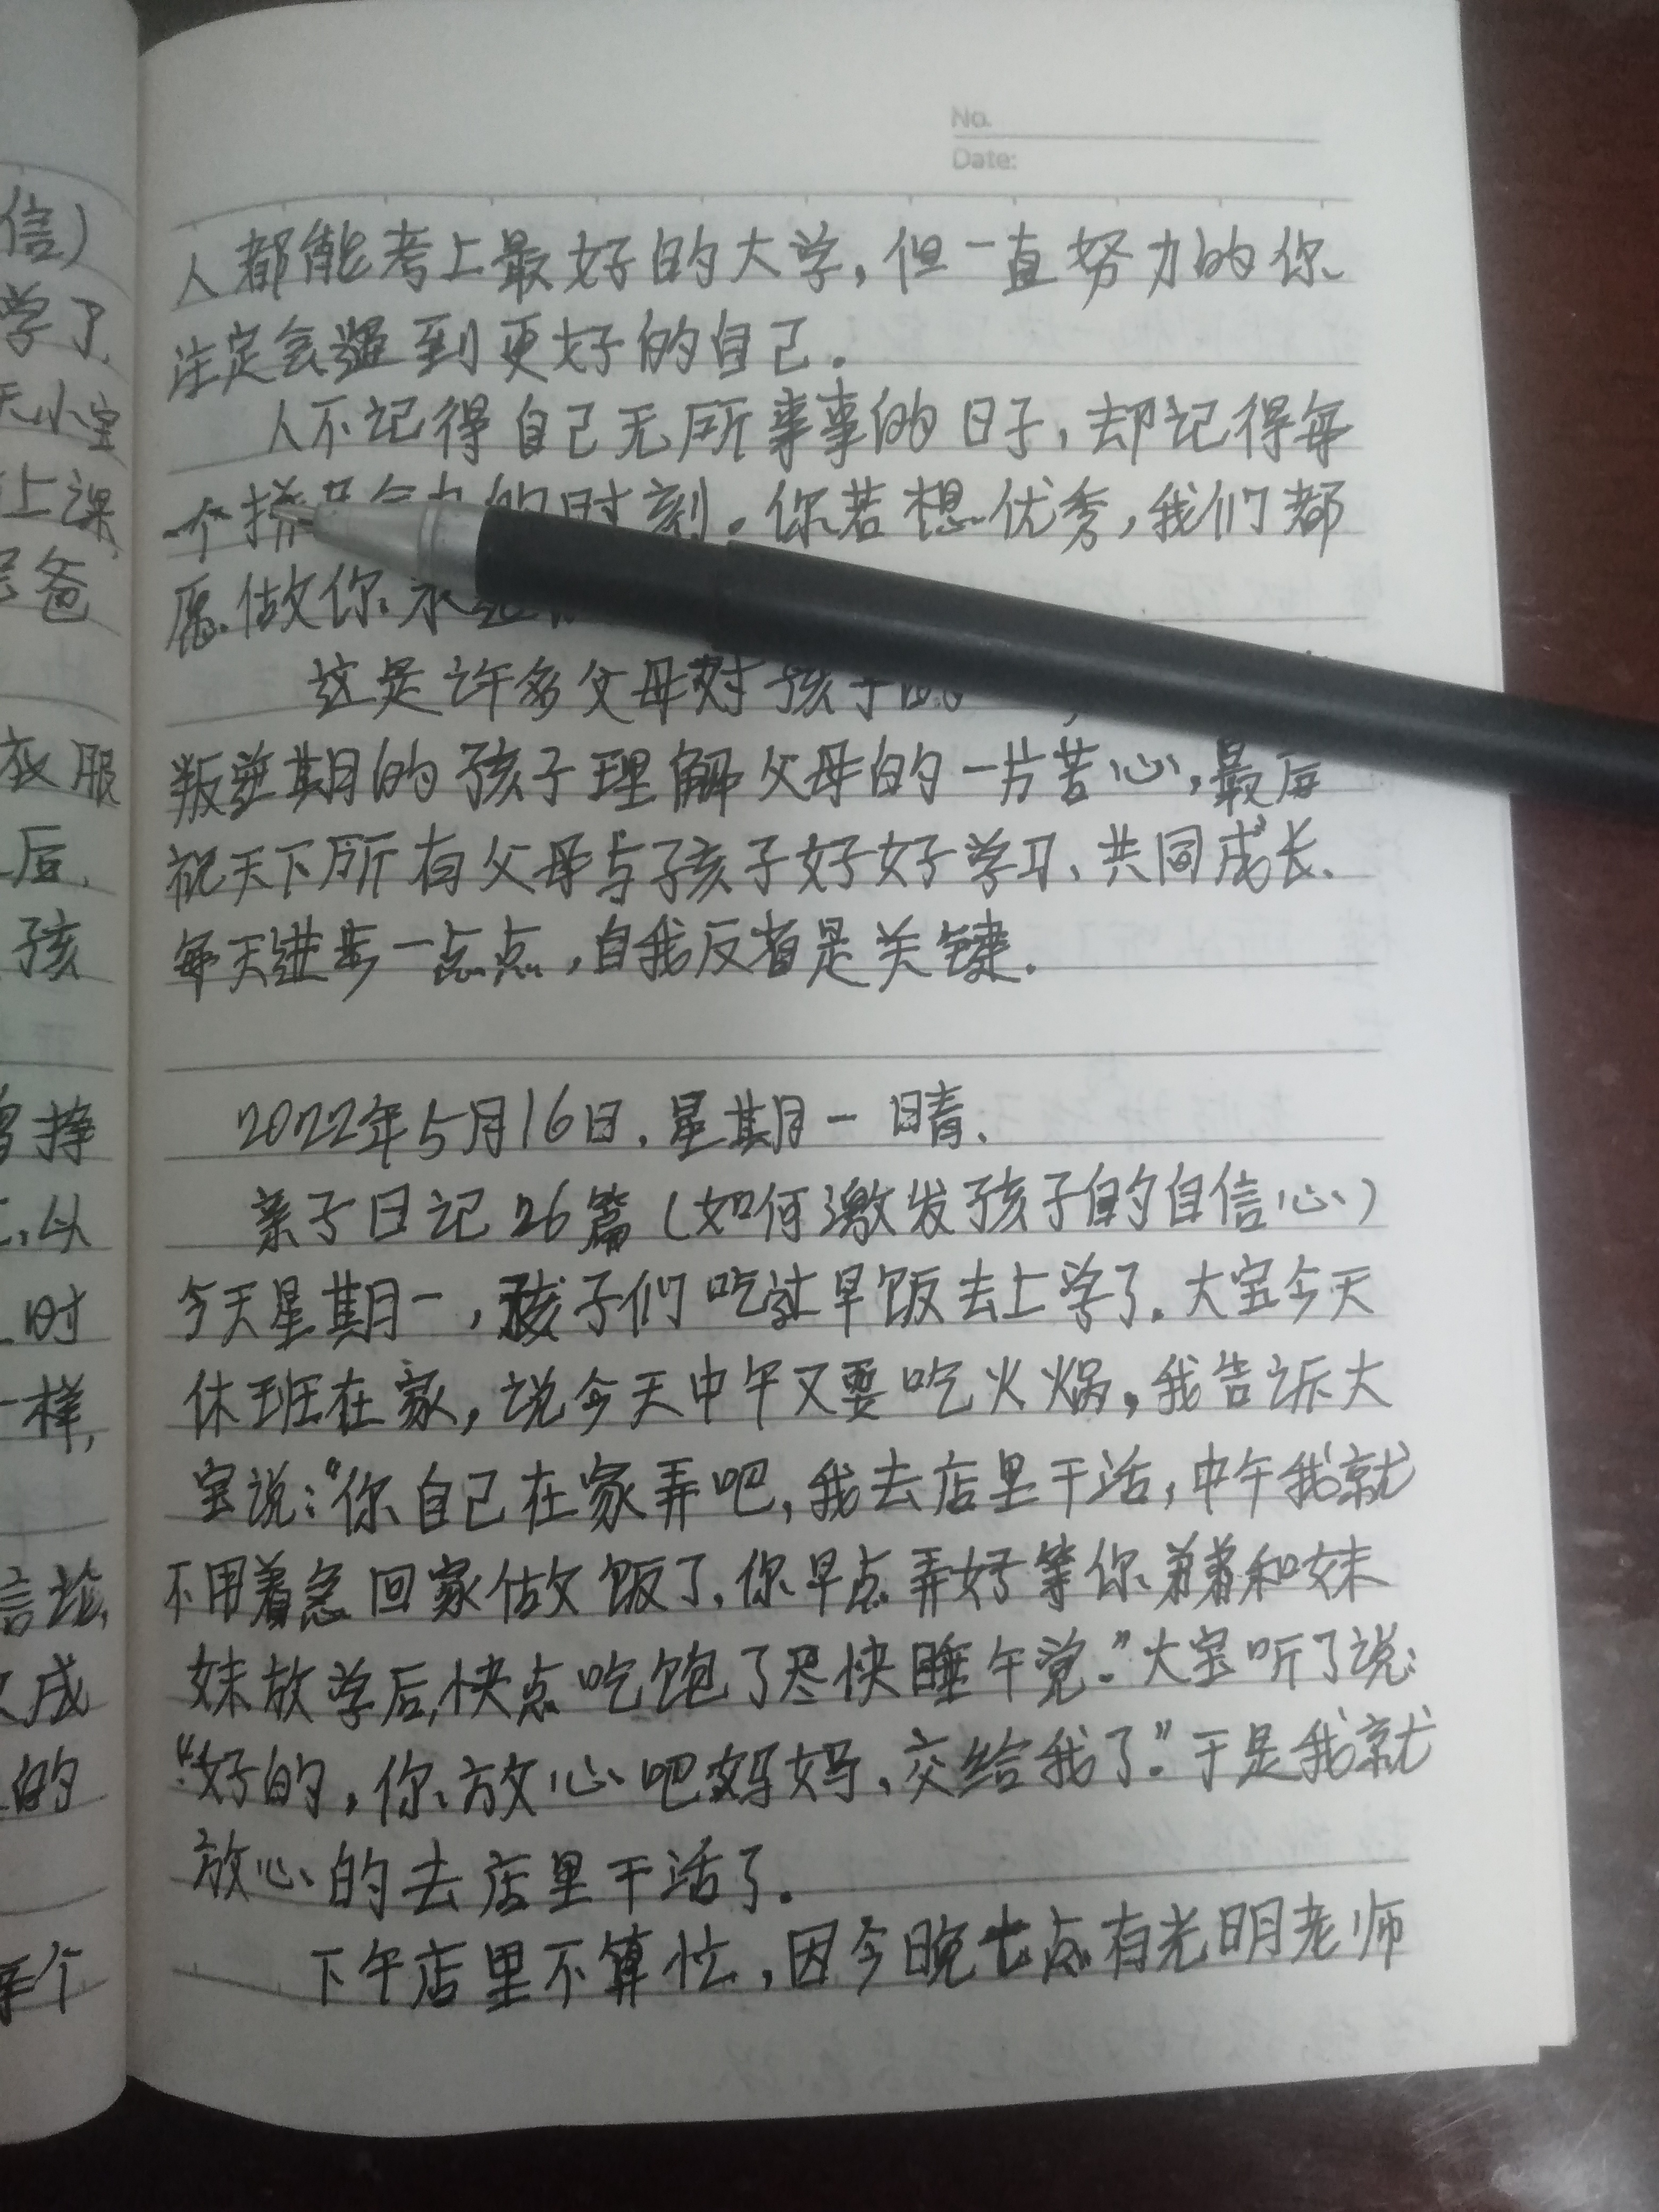 No.
Date:
人都能考上最好的大学,但一直努力的你
注定会遇到更好的自己.
人不记得自己无所事事的日子,却记得每
个拼 的时刻。你若想优秀,我们都
愿做你永远
这是许多父母对孩子的
叛逆期的孩子理解父母的一片苦心,最后
祝天下所有父母与孩子好好学习、共同成长、
每天进步一点点,自我反省是关键.
2022年5月16日.星期一 晴.
亲子日记26篇(如何激发孩子的自信心)
今天星期一,孩子们吃过早饭去上学了.大宝今天
休班在家,说今天中午又要吃火煱,我告诉大
宝说:“你自己在家弄吧,我去店里干活,中午我就
不用着急回家做饭了.你早点弄好等你弟弟和妹
妹放学后,快点吃饱了尽快睡午觉.”大宝听了说:
“好的,你放心吧妈妈,交给我了.”于是我就
放心的去店里干活了.
下午店里不算忙,因今晚七点有光明老师
信)
学了,
天小宝
上课,
爸
衣服
后,
孩
挣
,以
时
一样,
成
的
个